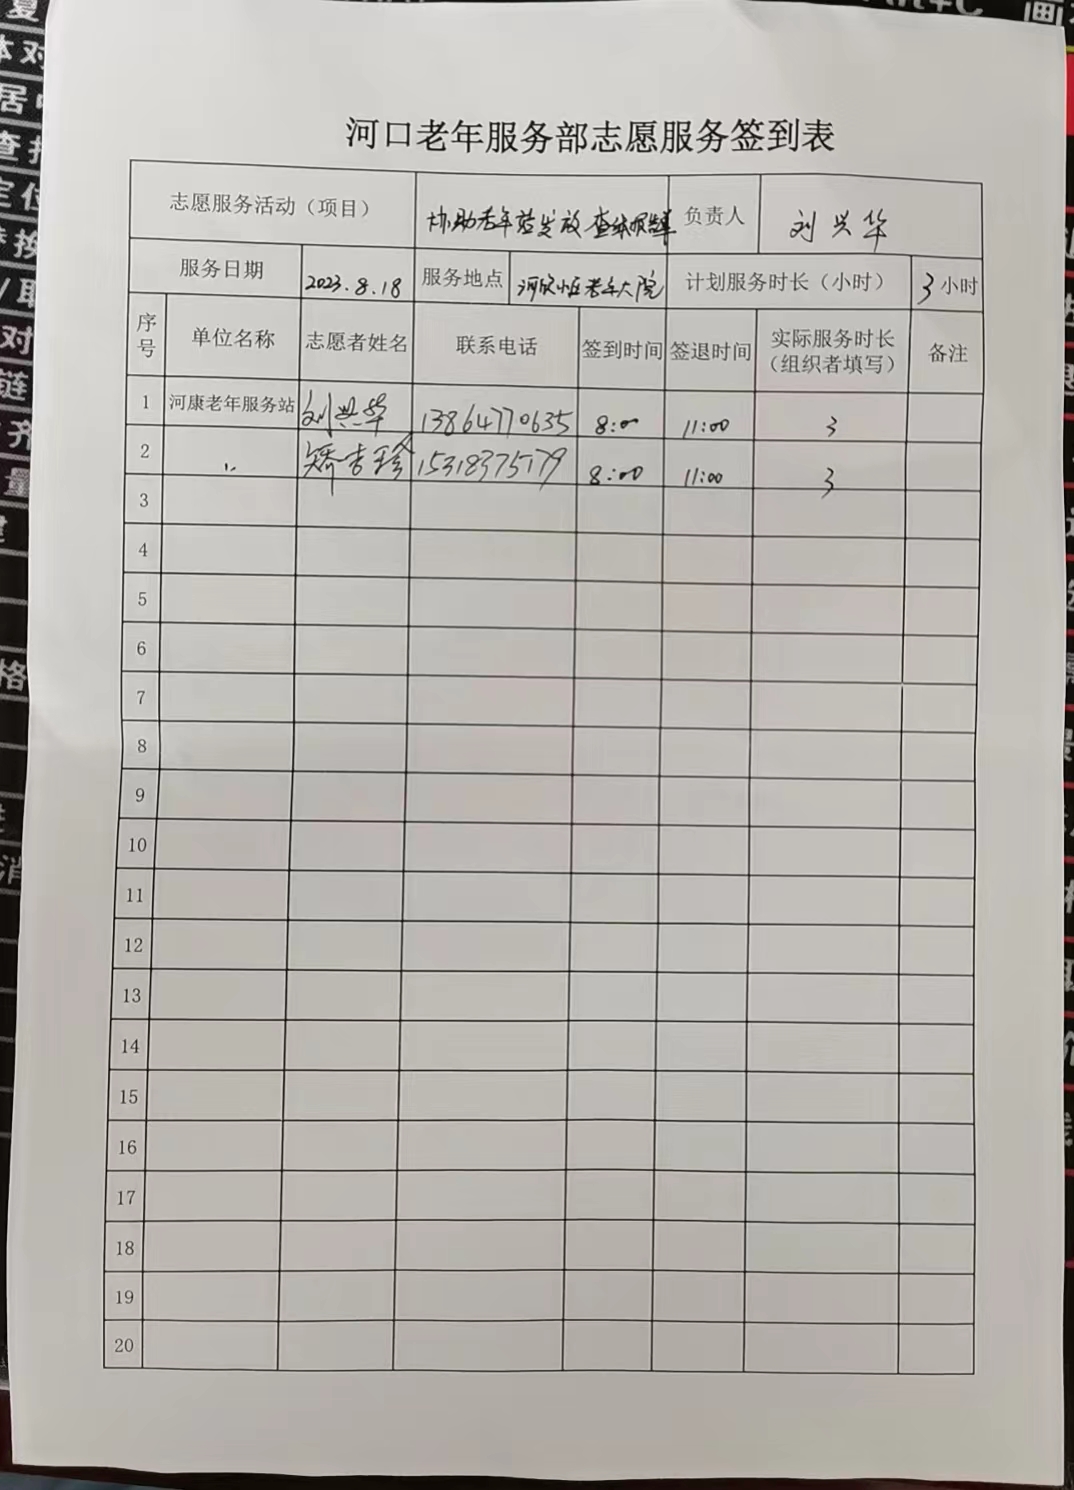 河口老年服务部志愿服务签到表
志愿服务活动（项目） 协助老年站发放查体明白单 负责人 刘兴华
服务日期 2023.8.18 服务地点 老年大院 计划服务时长（小时） 3小时
序号 单位名称 志愿者姓名 联系电话 签到时间 签退时间 实际服务时长（组织者填写） 备注
1 河康老年服务站 刘兴华 13864770635 8:00 11:00 3
2 〃 矫吉珍 15318375179 8:00 11:00 3
3
4
5
6
7
8
9
10
11
12
13
14
15
16
17
18
19
20